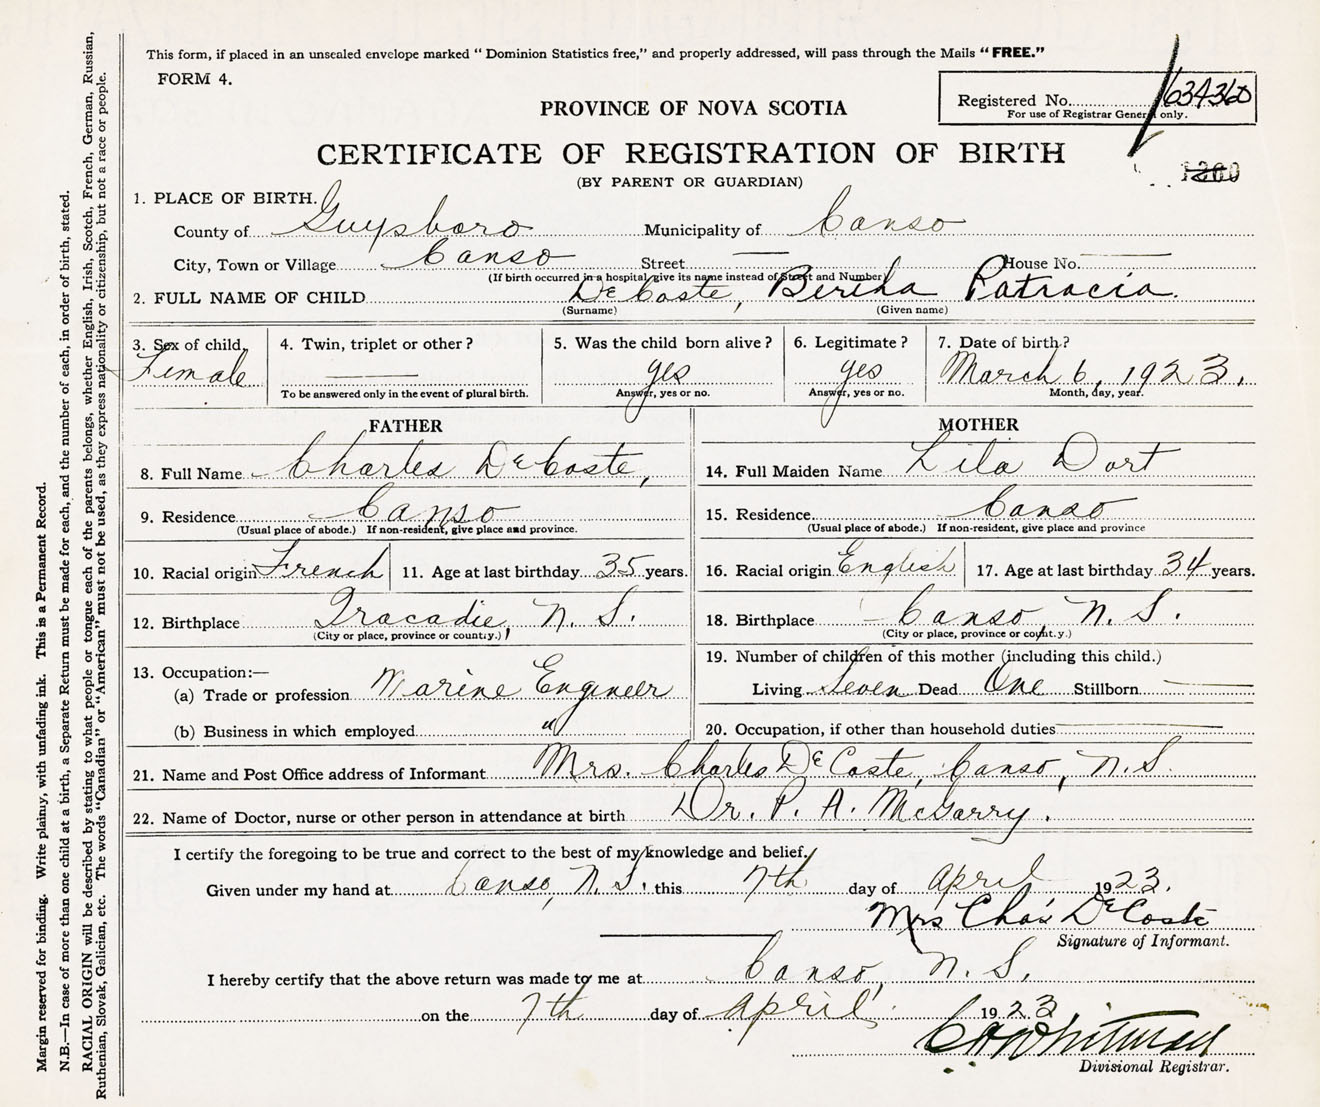 This form, if placed in an unsealed envelope marked “ Dominion Statistics free,” and properly addressed, will pass through the Mails “ FREE.”
FORM 4.
Registered No. 634360
For use of Registrar General only.
PROVINCE OF NOVA SCOTIA
CERTIFICATE OF REGISTRATION OF BIRTH
1200
(BY PARENT OR GUARDIAN)
1. PLACE OF BIRTH.
County of Guysboro Municipality of Canso
City, Town or Village Canso Street — House No. —
(If birth occurred in a hospital, give its name instead of Street and Number)
2. FULL NAME OF CHILD DeCoste, Bertha Patracia.
(Surname) (Given name)
3. Sex of child. Female
4. Twin, triplet or other ? —
To be answered only in the event of plural birth.
5. Was the child born alive ? yes
Answer, yes or no.
6. Legitimate ? yes
Answer, yes or no.
7. Date of birth ? March 6, 1923.
Month, day, year.
FATHER
8. Full Name Charles DeCoste,
9. Residence Canso
(Usual place of abode.) If non-resident, give place and province.
10. Racial origin French 11. Age at last birthday 35 years.
12. Birthplace Tracadie, N. S.
(City or place, province or county.)
13. Occupation:—
(a) Trade or profession Marine Engineer
(b) Business in which employed "
MOTHER
14. Full Maiden Name Lila Dort
15. Residence Canso
(Usual place of abode.) If non-resident, give place and province
16. Racial origin English 17. Age at last birthday 34 years.
18. Birthplace Canso, N. S.
(City or place, province or count.y.)
19. Number of children of this mother (including this child.)
Living Seven Dead One Stillborn —
20. Occupation, if other than household duties —
21. Name and Post Office address of Informant Mrs. Charles DeCoste, Canso, N.S.
22. Name of Doctor, nurse or other person in attendance at birth Dr. P. A. McGarry.
I certify the foregoing to be true and correct to the best of my knowledge and belief.
Given under my hand at Canso, N.S. this 7th day of April 1923.
Mrs Chas DeCoste
Signature of Informant.
I hereby certify that the above return was made to me at Canso, N. S.
on the 7th day of April, 1923
Whitman
Divisional Registrar.
Margin reserved for binding. Write plainly, with unfading ink. This is a Permanent Record.
N.B.—In case of more than one child at a birth, a Separate Return must be made for each, and the number of each, in order of birth, stated.
RACIAL ORIGIN will be described by stating to what people or tongue each of the parents belongs, whether English, Irish, Scotch, French, German, Russian,
Ruthenian, Slovak, Galician, etc. The words “Canadian” or “American” must not be used, as they express nationality or citizenship, but not a race or people.